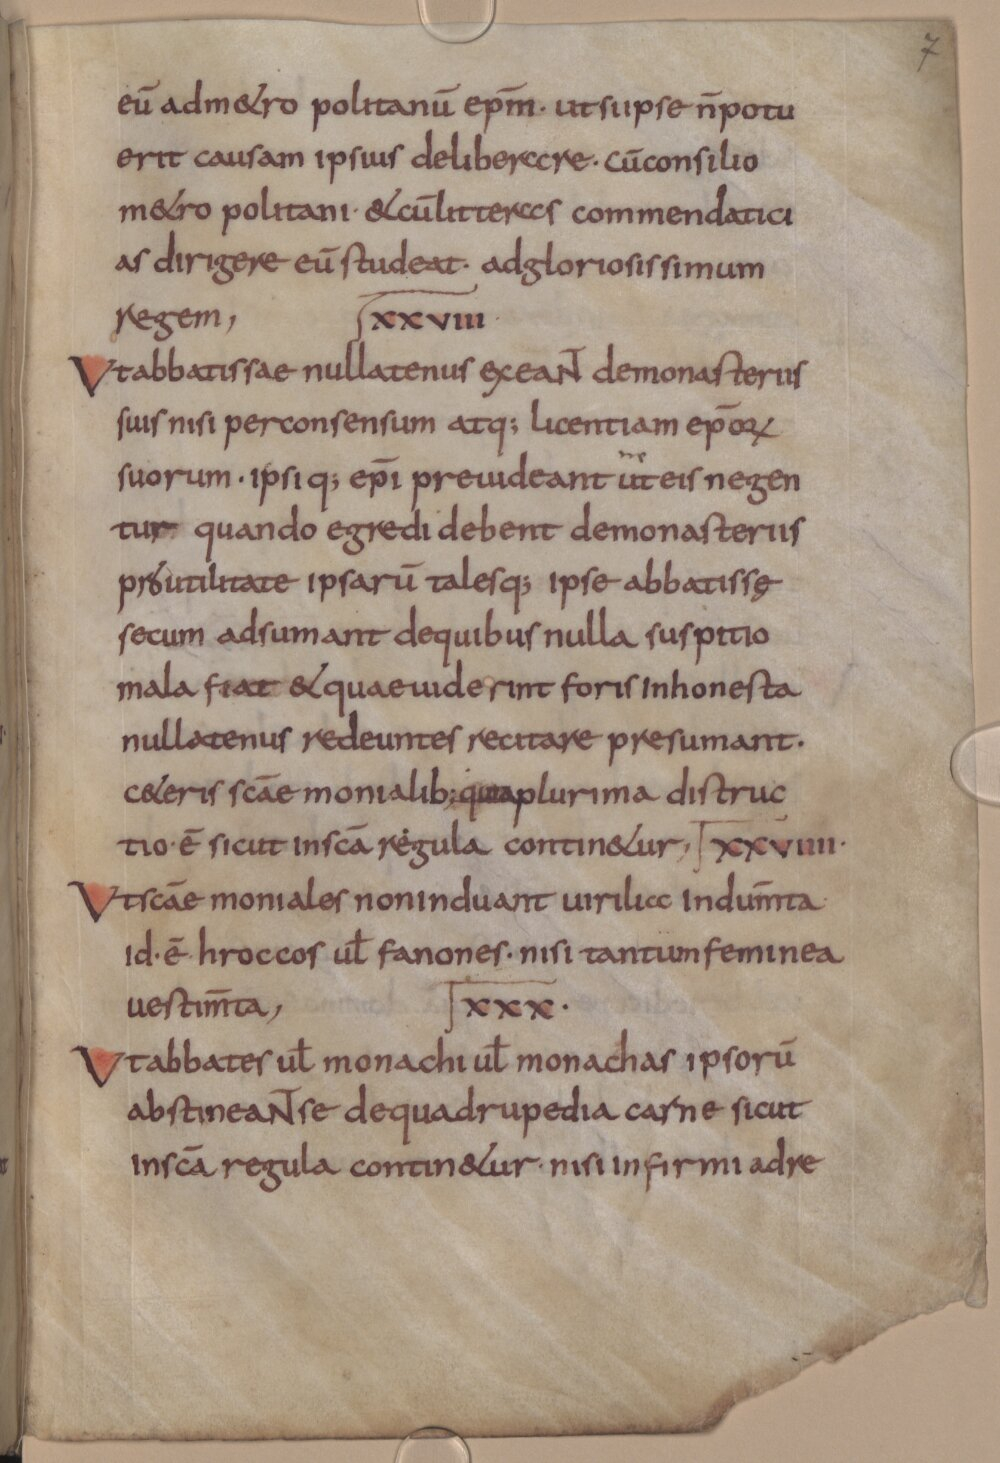 7
eū adm&ro politanū ep̄m· ut si ipse n̄ potu
erit causam ipsius deliberare· cū consilio
m&ro politani· & cū litteras commendatici
as dirigere eū studeat· ad gloriosissimum
regem, XXVIII
Vt abbatissae nullatenus exeant demonasteriis
suis nisi per consensum atq; licentiam ep̄orꝝ
suorum· ipsi q; ep̄i preuideant ut ne eis negen
tur quando egredi debent demonasteriis
pro utilitate ipsarū talesq; ipse abbatissę
secum adsumant de quibus nulla suspitio
mala fiat & quae uiderint foris inhonesta
nullatenus redeuntes recitare presumant·
c&eris sc̄ae monialib; quia plurima distruc
tio·ē sicut in sc̄a regula contin&ur, XXVIIII·
Vt sc̄ae moniales non induant uirilia indum̄ta
id·ē hroccos ul̄ fanones· nisi tantum feminea
uestim̄ta, XXX·
Vt abbates ul̄ monachi ul̄ monachas ipsorū
abstineant se de quadrupedia carne sicut
in sc̄a regula contin&ur· nisi infirmi ad re